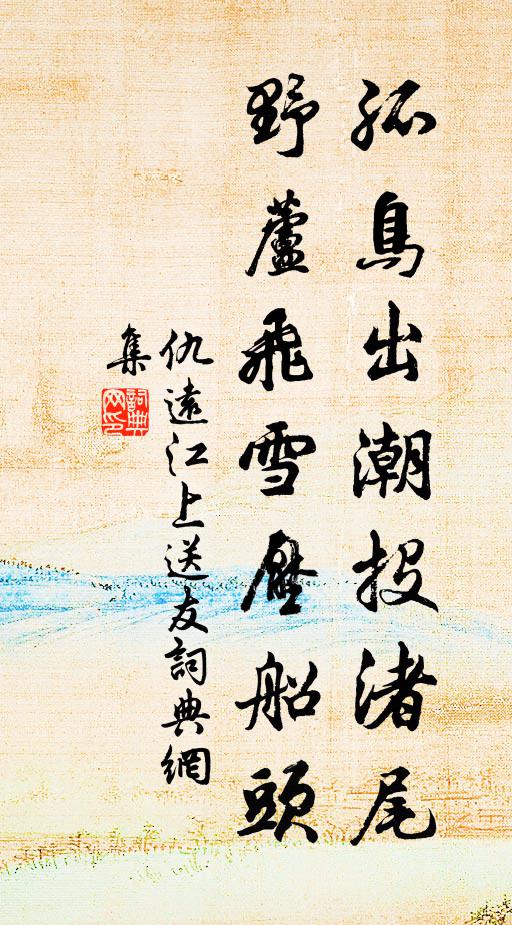 孤鳥出潮投渚尾
野蘆飛雪壓船頭
仇遠江上送友詞典網
集
詞典
网印